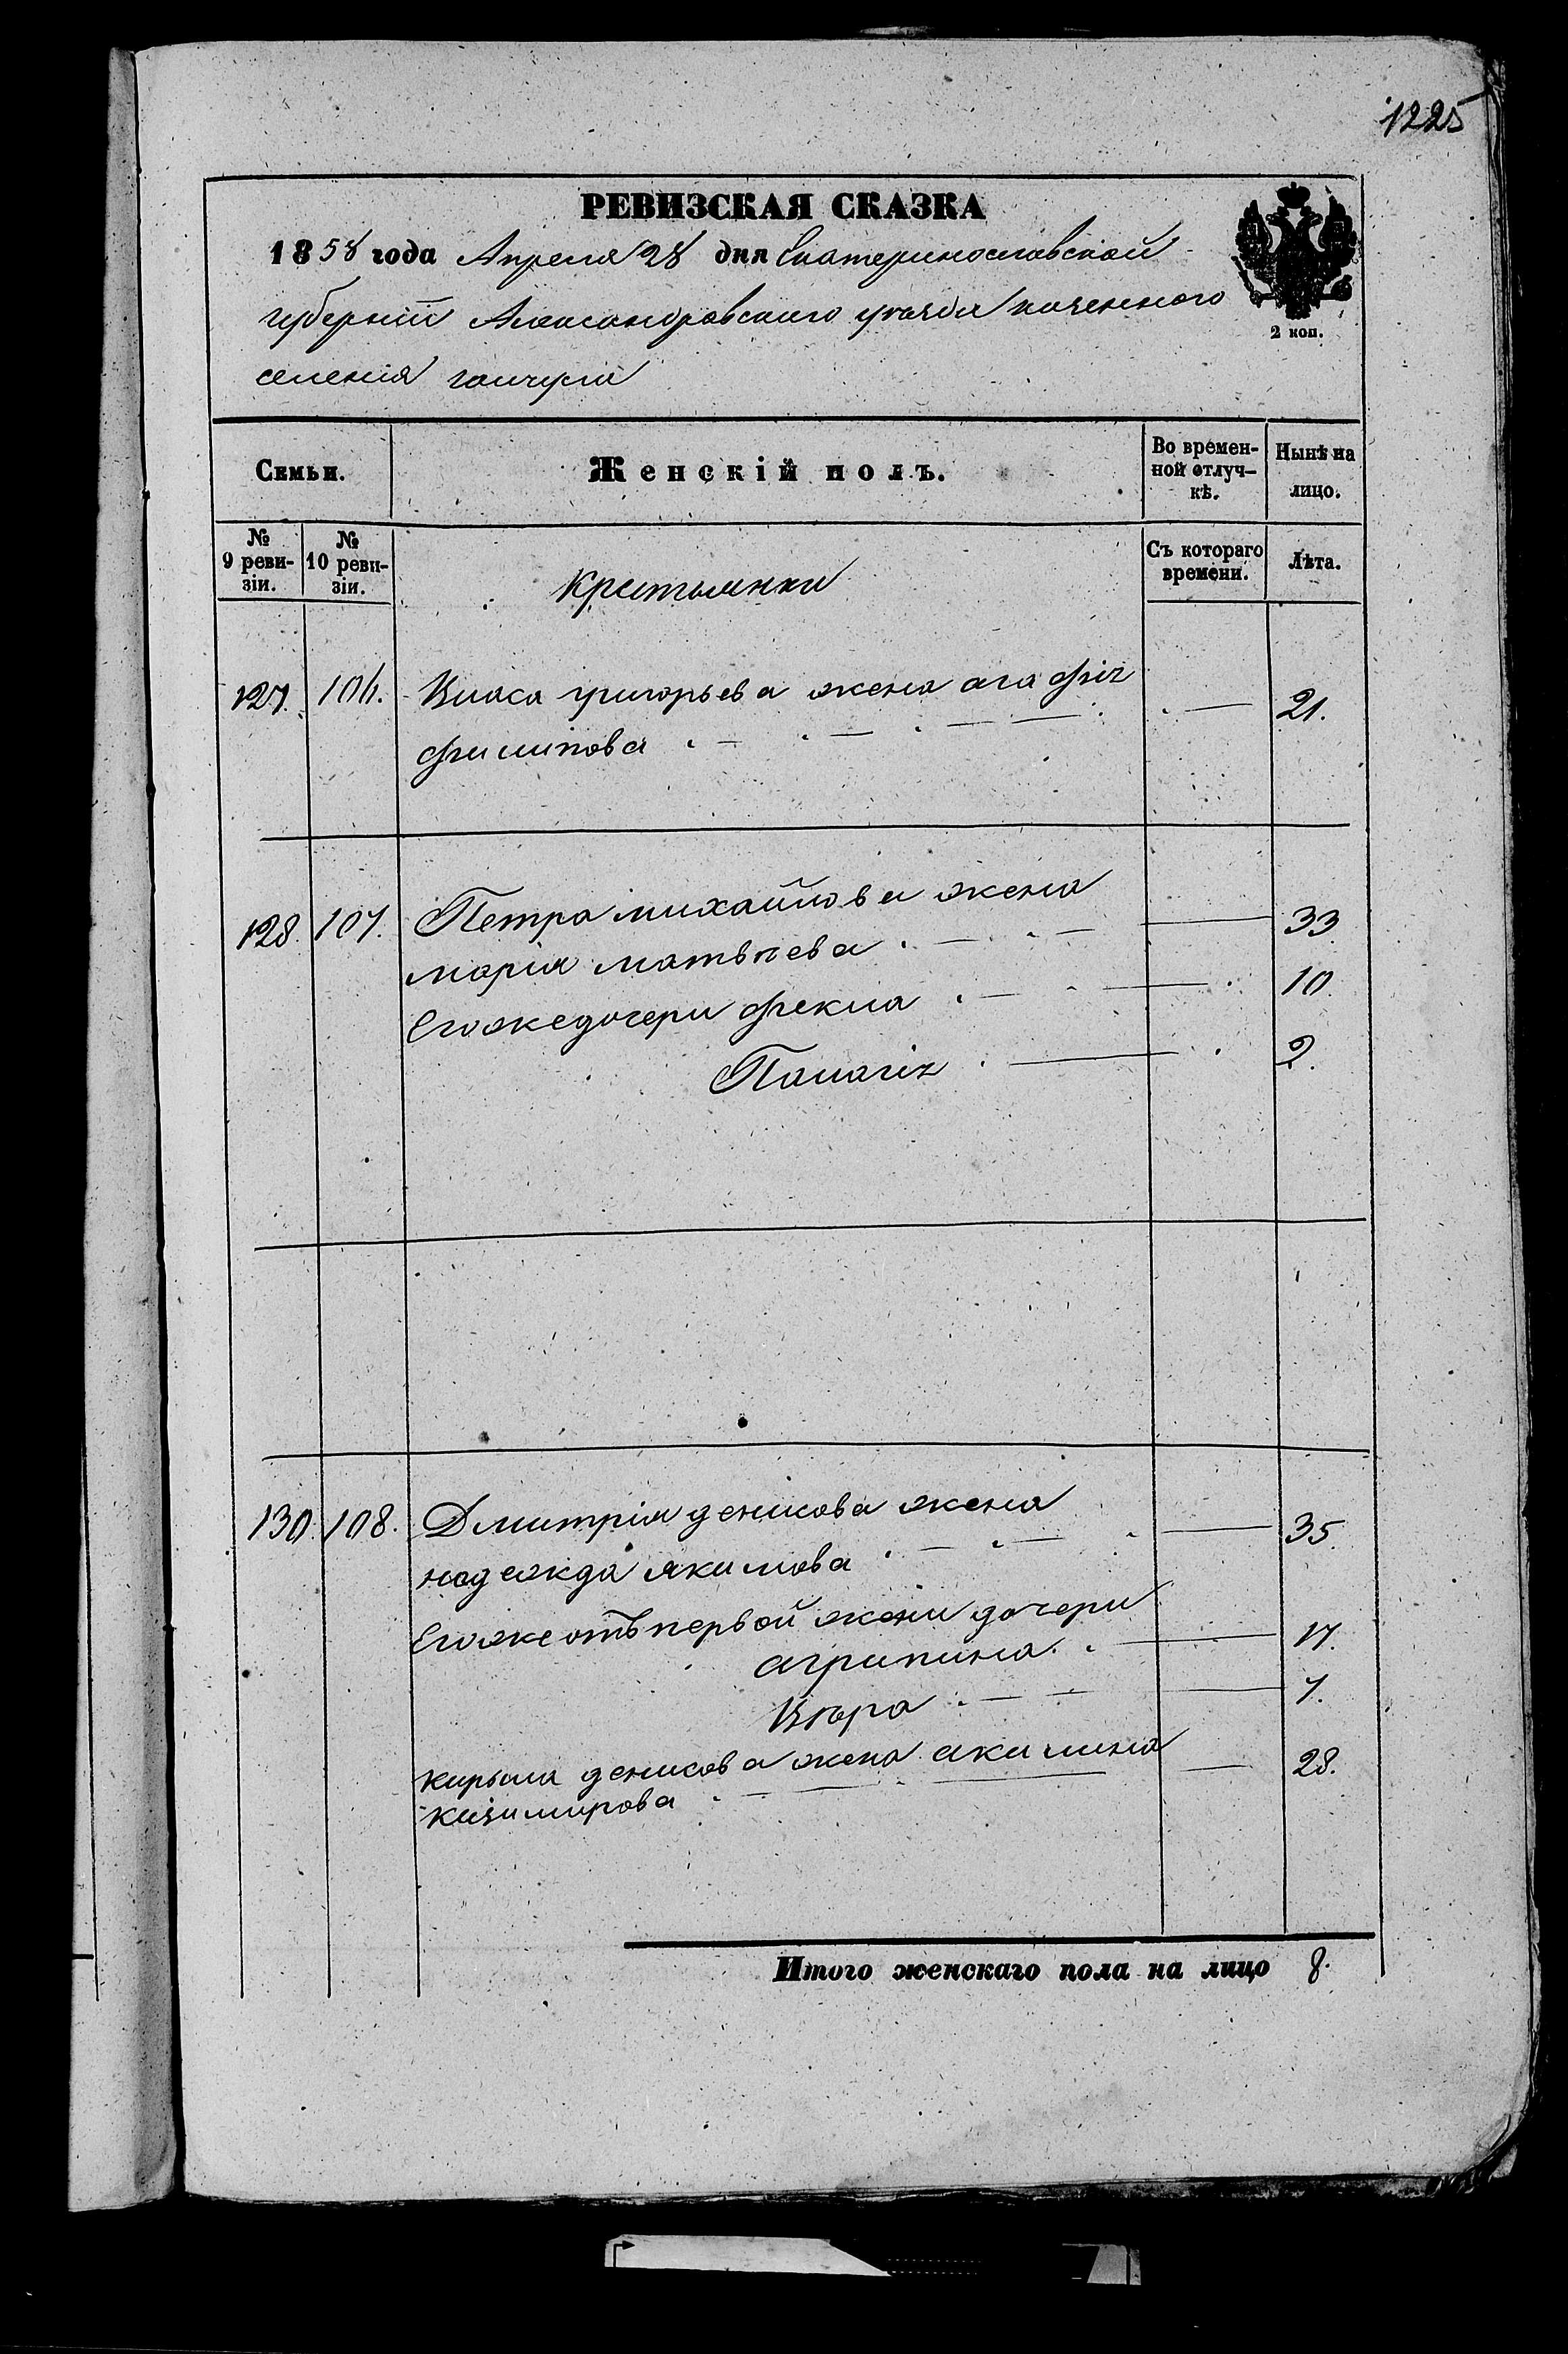 1225
РЕВИЗСКАЯ СКАЗКА
1858 года Апреля 28 дня Екатеринославской
губерніи Александровскаго уезда казенного
селенія гайчула
2 коп.
Семьи.
Женскій полъ.
Во времен-
ной отлуч-
кѣ.
Нынѣ на
лицо.
№
9 реви-
зіи.
№
10 реви-
зіи.
крестьянки
Съ котораго
времени.
Лѣта.
127. 106. Власа григорьева жена агафія
филипова 21.
128. 107. Петра михайлова жена
марія матвѣева 33
Егожедочери фекла 10.
Палагія 2.
130. 108. Дмитрія денисова жена
надежда якимова 35.
Егожеотъпервой жени дочери
агрипина 17.
Вѣра 7.
кирыла денисова жена акилина 28.
казимирова
Итого женскаго пола на лицо 8.